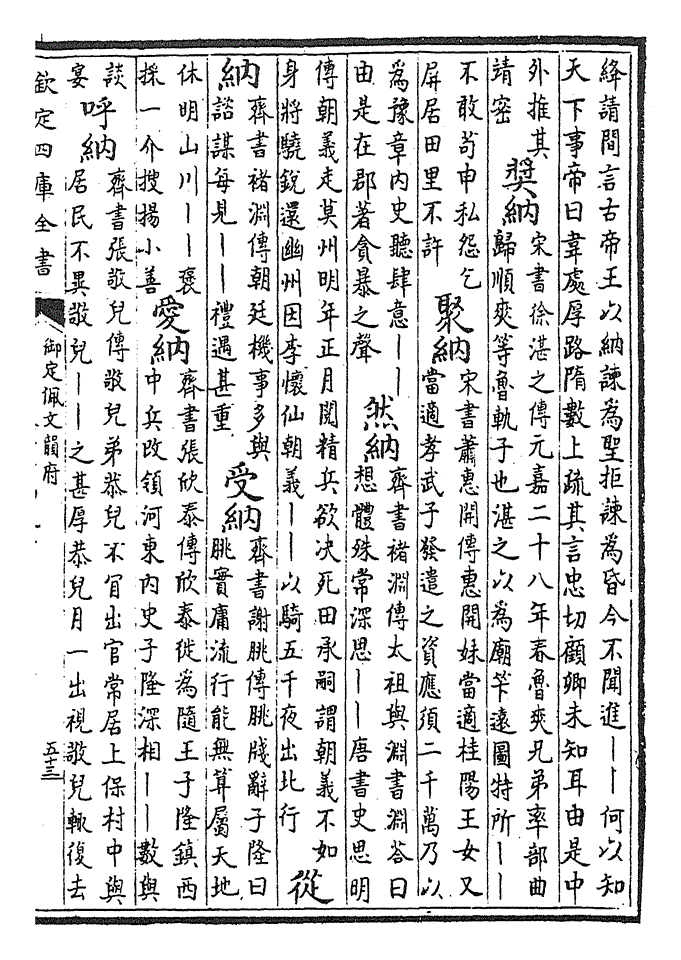 絳請間言古帝王以納諫為聖拒諫為昏今不聞進｜｜何以知
天下事帝曰韋處厚路隋數上疏其言忠切顧卿未知耳由是中
外推其
靖密
奬納
宋書徐湛之傳元嘉二十八年春魯爽兄弟率部曲
歸順爽等魯軌子也湛之以為廟筭遠圖特所｜｜
不敢茍申私怨乞
屏居田里不許
聚納
宋書蕭惠開傳惠開妹當適桂陽王女又
當適孝武子發遣之資應須二千萬乃以
為豫章内史聽肆意｜｜
由是在郡著貪暴之聲
然納
齊書褚淵傳太祖與淵書淵答曰
想體殊常深思｜｜唐書史思明
傳朝義走莫州明年正月閱精兵欲决死田承嗣謂朝義不如
身將驍銳還幽州因李懷仙朝義｜｜以騎五千夜出北行
從
納
齊書褚淵傳朝廷機事多與
諮謀每見｜｜禮遇甚重
受納
齊書謝朓傳朓牋辭子隆曰
朓實庸流行能無筭屬天地
休明山川｜｜褒
採一介搜揚小善
愛納
齊書張欣泰傳欣泰徙為隨王子隆鎮西
中兵改領河東内史子隆深相｜｜數與
談
宴
呼納
齊書張敬兒傳敬兒弟恭兒不肎出官常居上保村中與
居民不異敬兒｜｜之甚厚恭兒月一出視敬兒輒復去
欽定四庫全書
御定佩文韻府
五十三